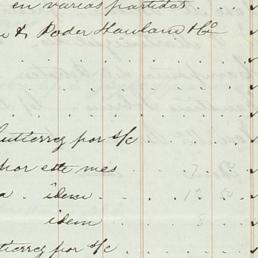 en varias partidas
& Poder Howland & Co
Gutierrez por s/c
por este mes
a idem
idem
Gutierrez por s/c